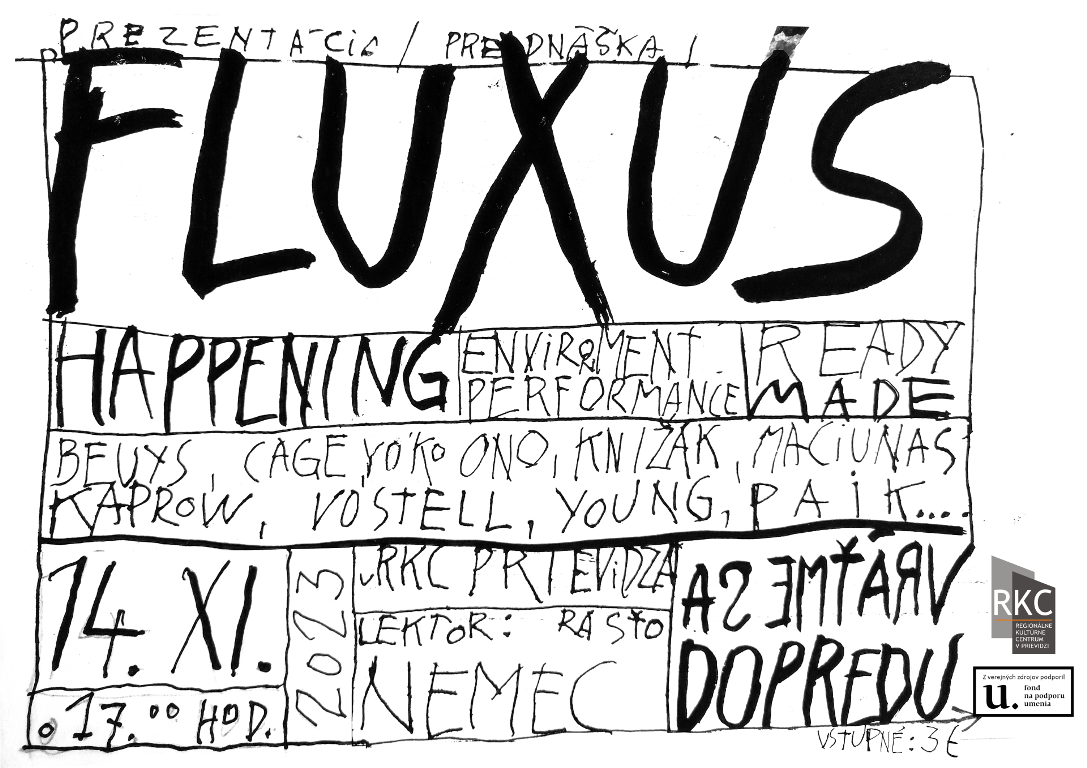 PREZENTÁCIA / PREDNÁŠKA /
FLUXUS
HAPPENING
ENVIROMENT.
PERFORMANCE
READY
MADE
BEUYS, CAGE, YOKO ONO, KNIŽAK, MACIUNAS
KAPROW, VOSTELL, YOUNG, PAIK....
14. XI.
o 17.00 HOD.
2023
v RKC PRIEVIDZA
LEKTOR: RASŤO
NEMEC
VRÁŤME SA
DOPREDU
VSTUPNÉ: 3€
RKC
REGIONÁLNE
KULTÚRNE
CENTRUM
V PRIEVIDZI
Z verejných zdrojov podporil
u. fond
na podporu
umenia